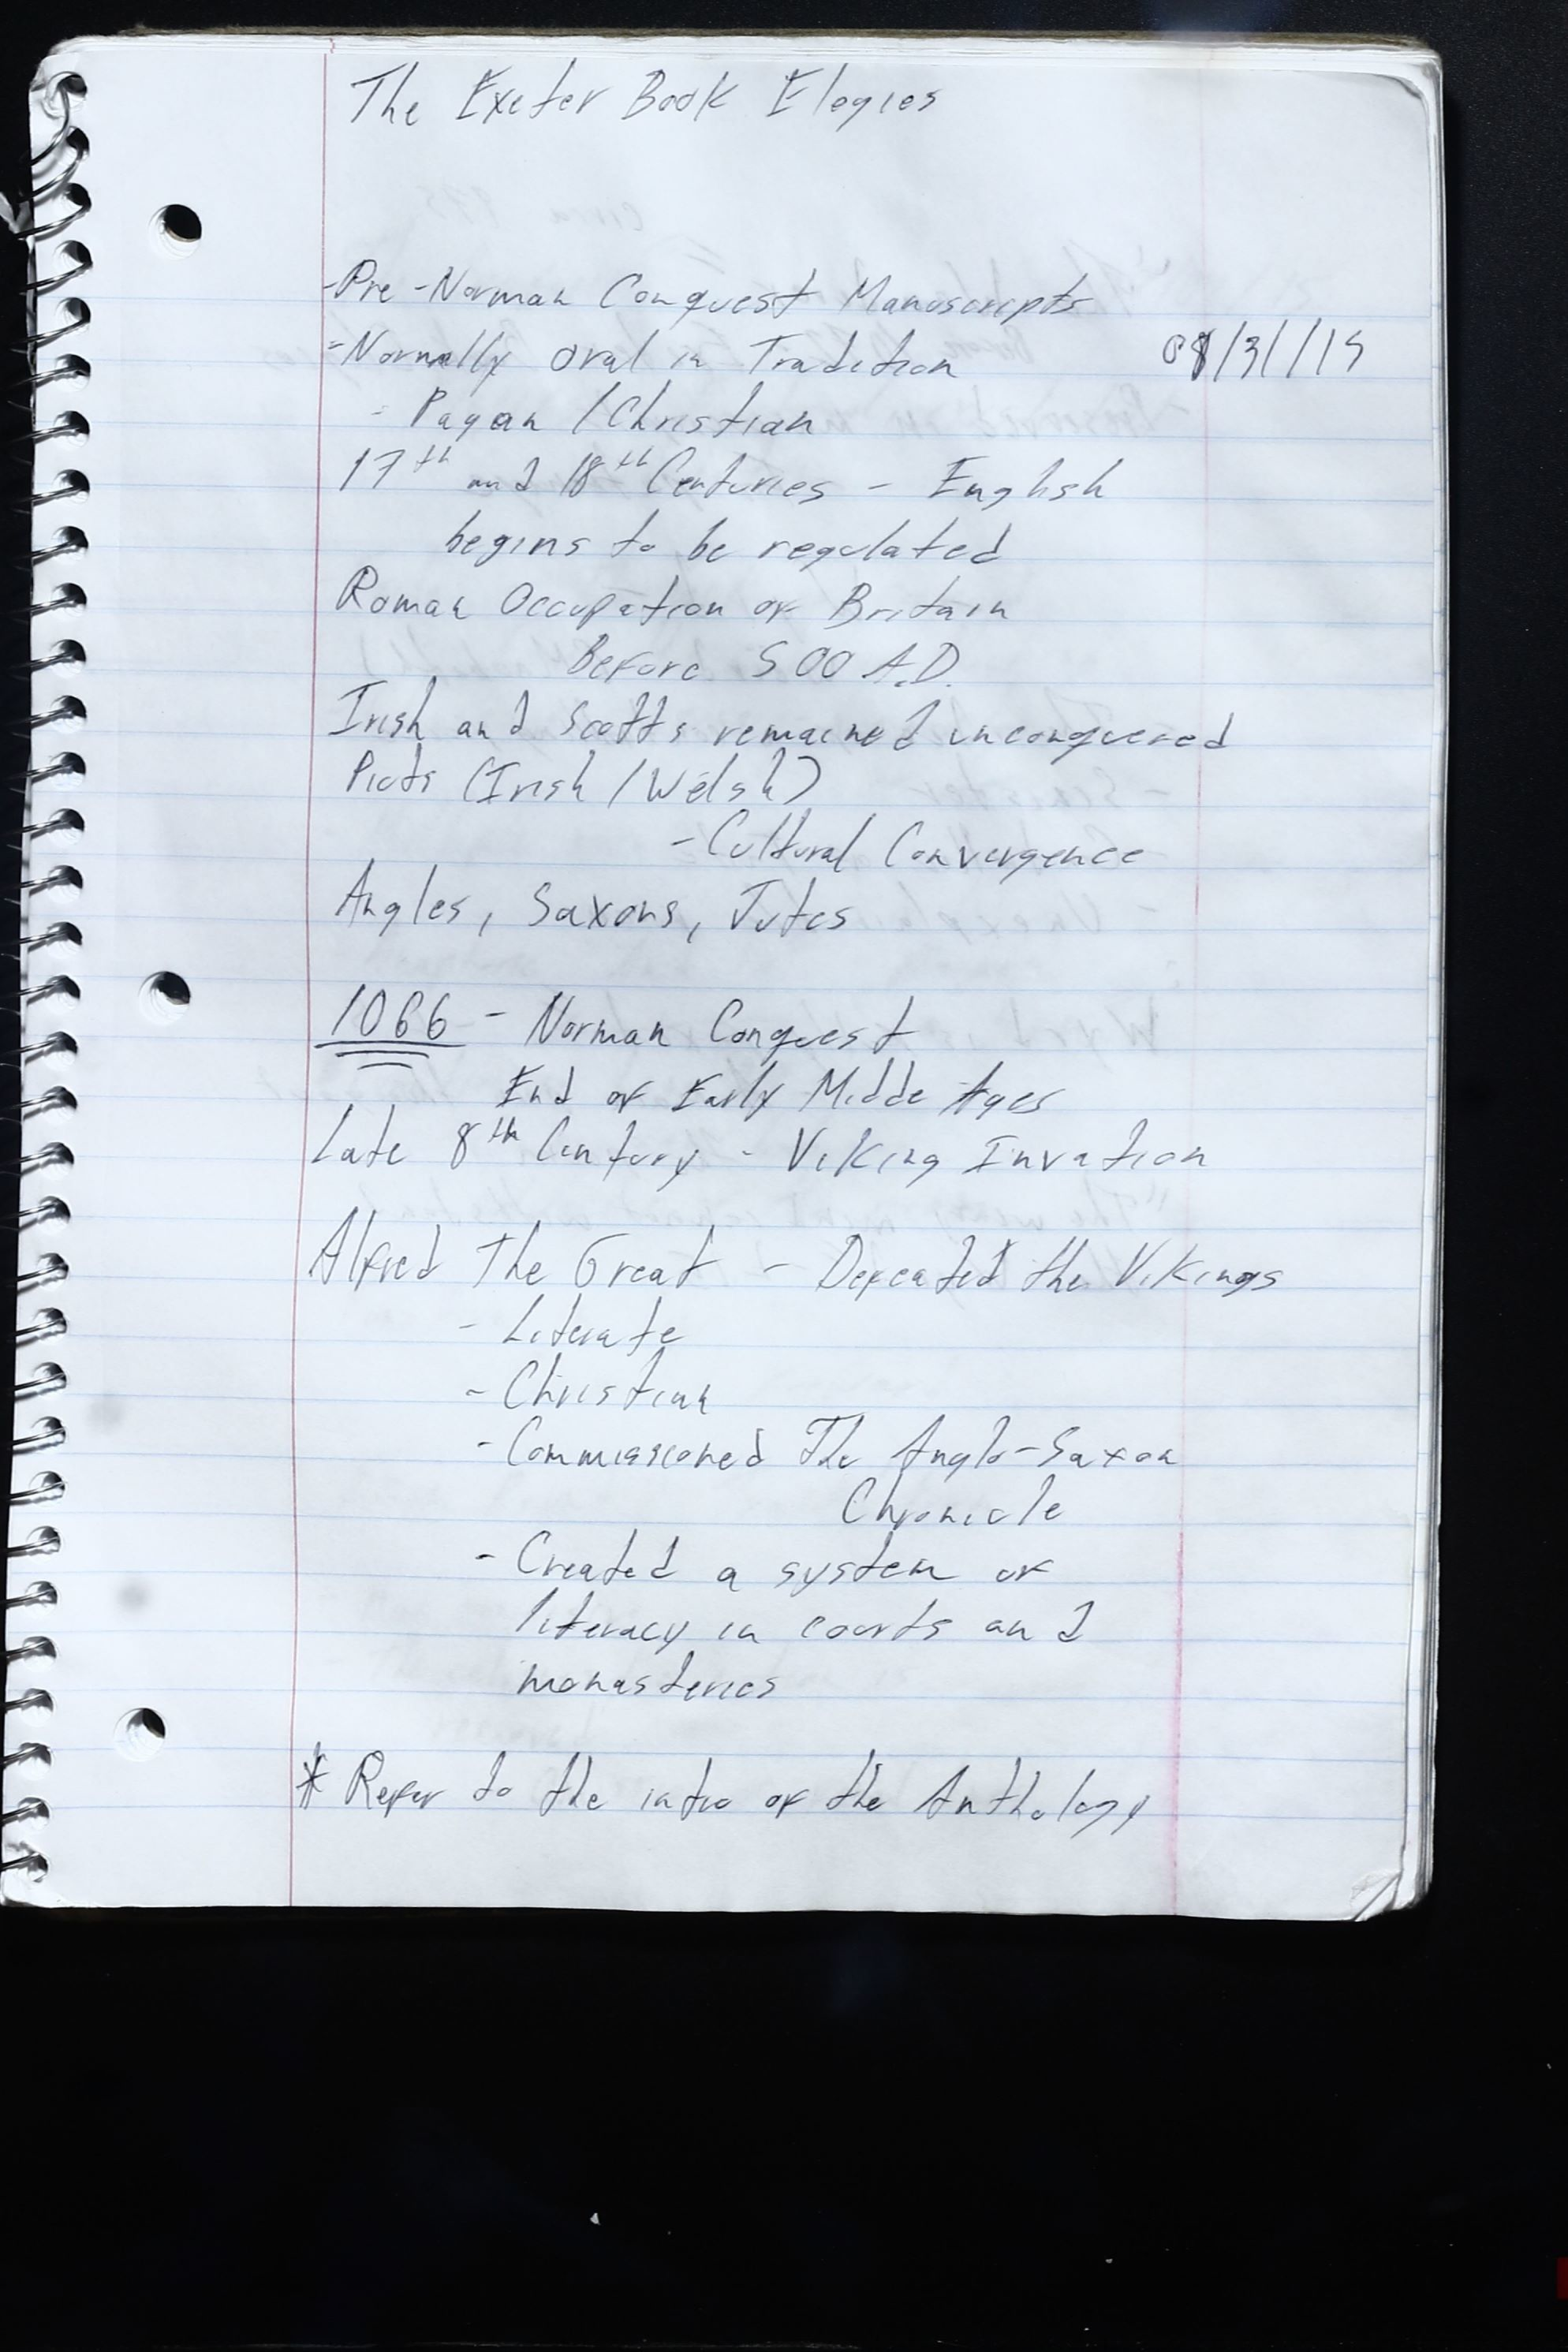 The Exeter Book Elegies
-Pre-Norman Conquest Manuscripts
-Normally oral in Tradition
08/31/15
- Pagan / Christian
17th and 18th Centuries - English
begins to be regulated
Roman Occupation of Britain
Before 500 A.D.
Irish and Scotts remained unconquered
Picts (Irish / Welsh)
-Cultural Convergence
Angles, Saxons, Jutes
1066 - Norman Conquest
End of Early Midde Ages
Late 8th Century - Viking Invation
Alfred The Great - Defeated the Vikings
- Literate
- Christian
- Commissioned The Anglo-Saxon
Chronicle
- Created a system of
literacy in courts and
monasteries
* Refer to the intro of the Anthology